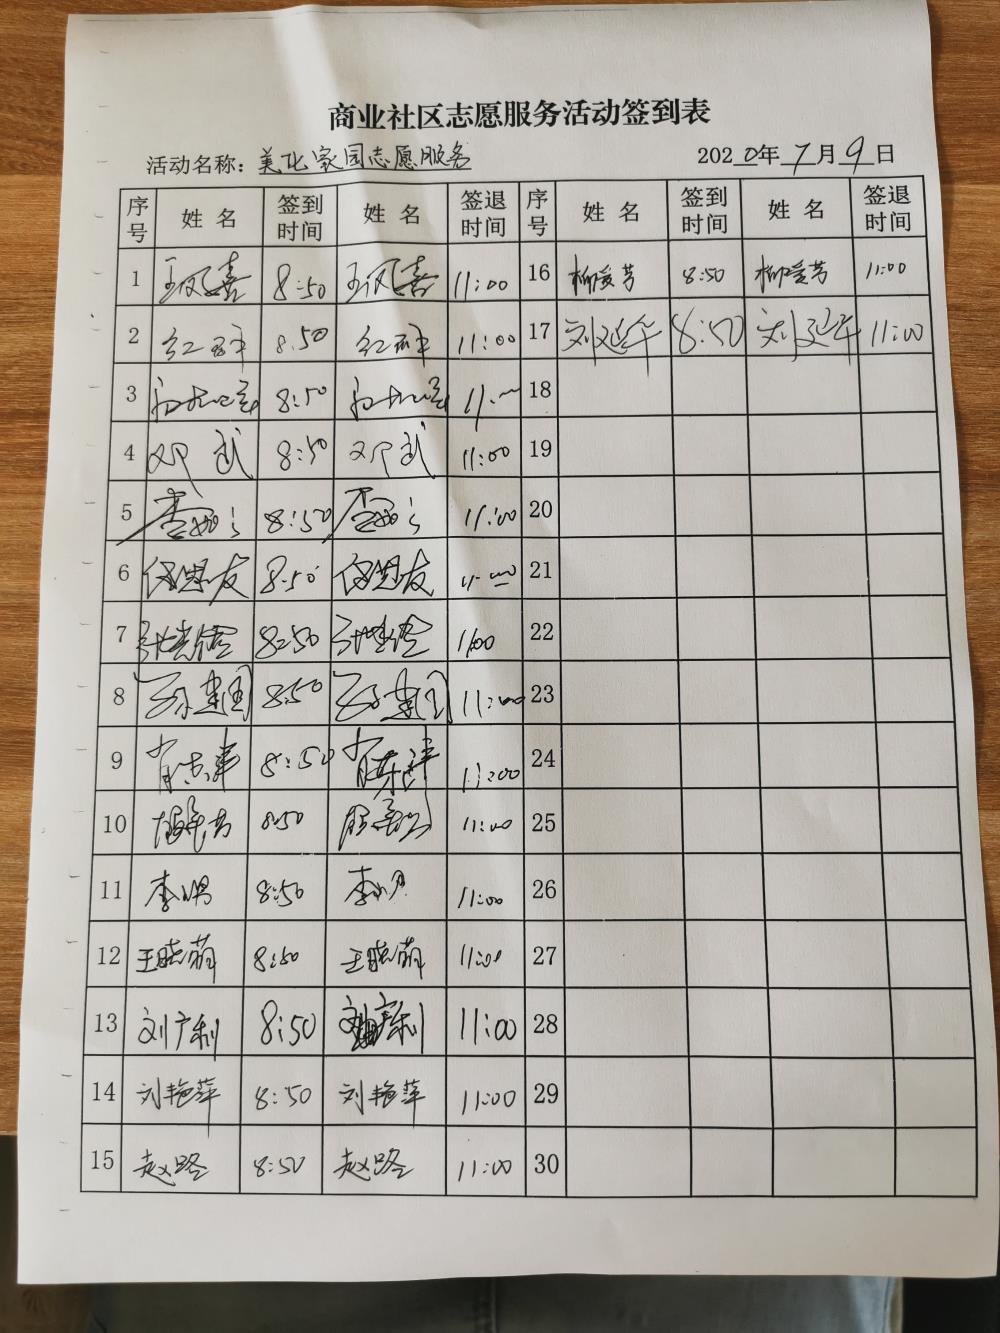 商业社区志愿服务活动签到表
活动名称：美化家园志愿服务 2020年7月9日
序号 姓名 签到时间 姓名 签退时间 序号 姓名 签到时间 姓名 签退时间
1 王凤喜 8:50 王凤喜 11:00 16 柳爱芳 8:50 柳爱芳 11:00
2 8.50 11:00 17 刘延华 8:50 刘延华 11:00
3 8:50 18
4 邓武 8:50 邓武 11:00 19
5 8:50 11:00 20
6 8.50 21
7 8:50 11:00 22
8 孙建国 8:50 孙建国 11:00 23
9 8:50 11:00 24
10 8:50 11:00 25
11 李明 8:50 李明 11:00 26
12 王晓萌 8:50 王晓萌 11:00 27
13 刘广利 8:50 刘广利 11:00 28
14 刘艳萍 8:50 刘艳萍 11:00 29
15 赵路 8:50 赵路 11:00 30